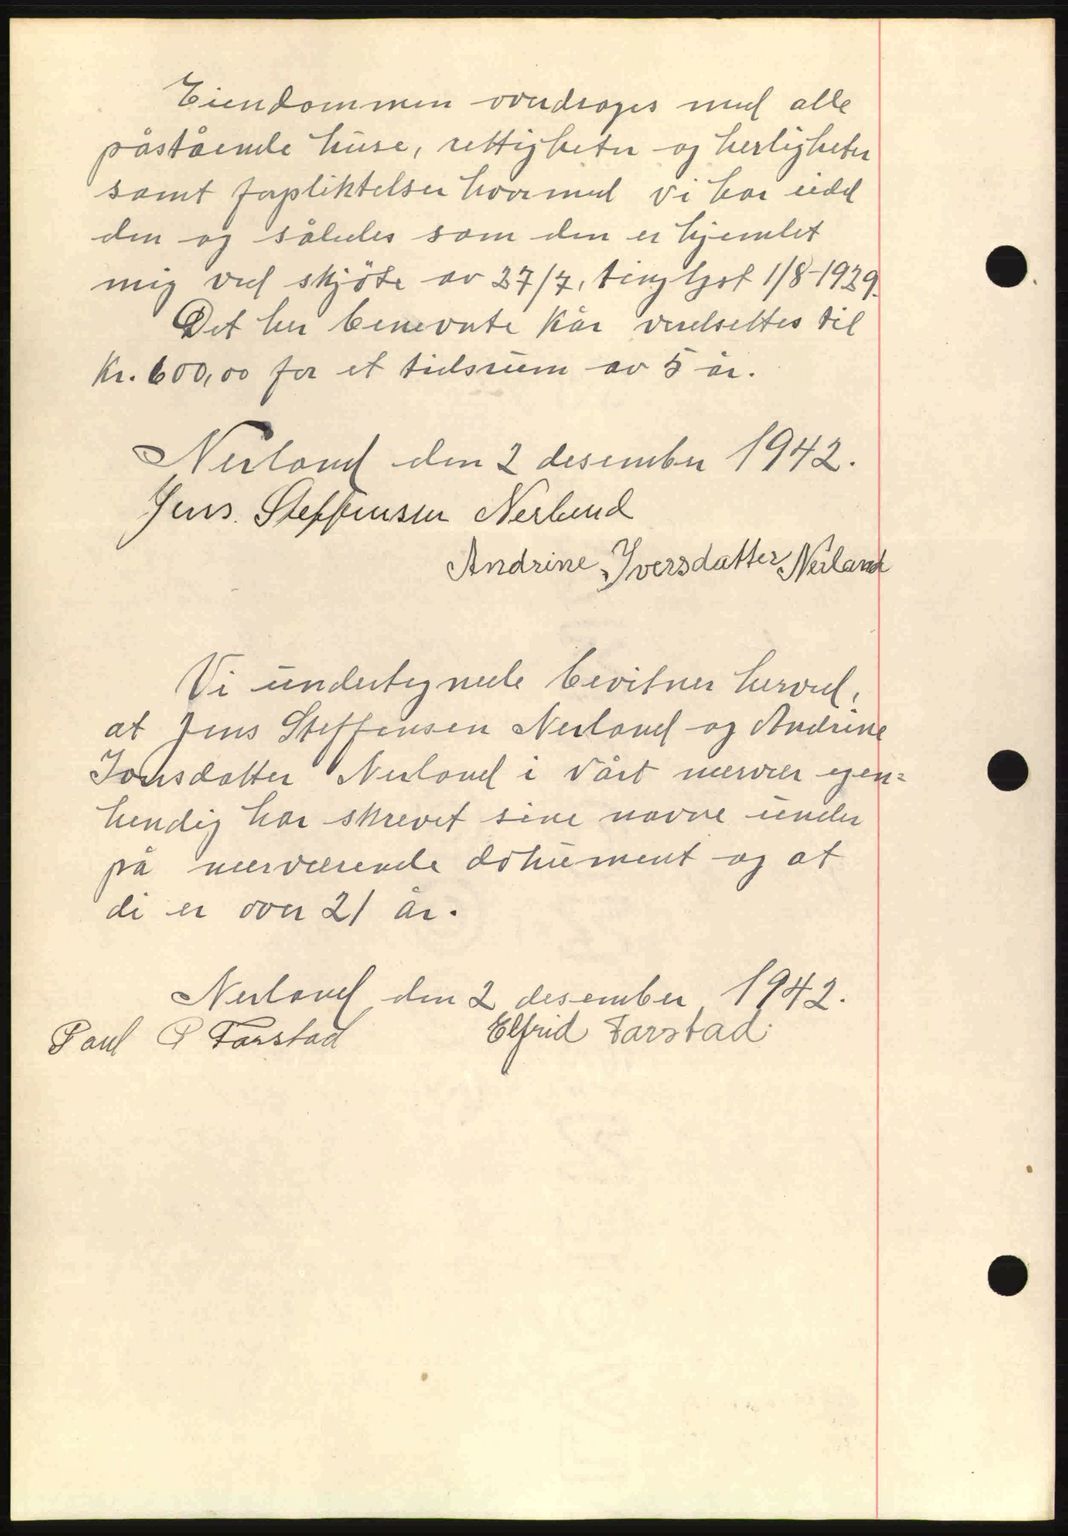 Eiendommen overdrages med alle
påstående huse, rettigheter og herligheter
samt forpliktelser hvormed vi har eiet
den og således som den er hjemlet
mig ved skjöte av 27/7, tinglyst 1/8-1929.
Det her benevnte kår verdsettes til
kr. 600,00 for et tidsrum av 5 år.
Nerland den 2 desember 1942.
Jens Steffensen Nerland
Andrine Iversdatter Nerland
Vi undertegnede bevitner herved,
at Jens Steffensen Nerland og Andrine
Nerland i vårt nærvær egen=
hendig har skrevet sine navne under
på nærværende dokument og at
di er over 21 år.
Nerland den 2 desember 1942.
Paul P Farstad Elfrid Farstad